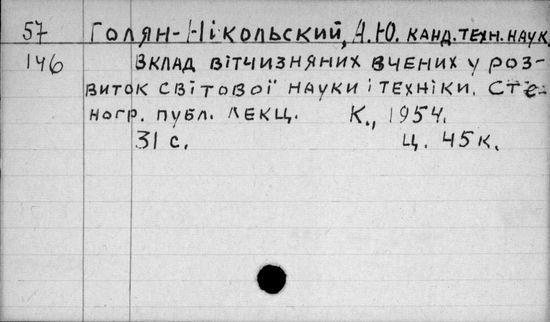 57 Голян-Нікольский, А.Ю. канд. техн. наук
146 Вклад вітчизняних вчених у роз-
виток світової науки і техніки. Сте-
ногр. публ. лекц. К., 1954.
31 с. Ц. 45 к.